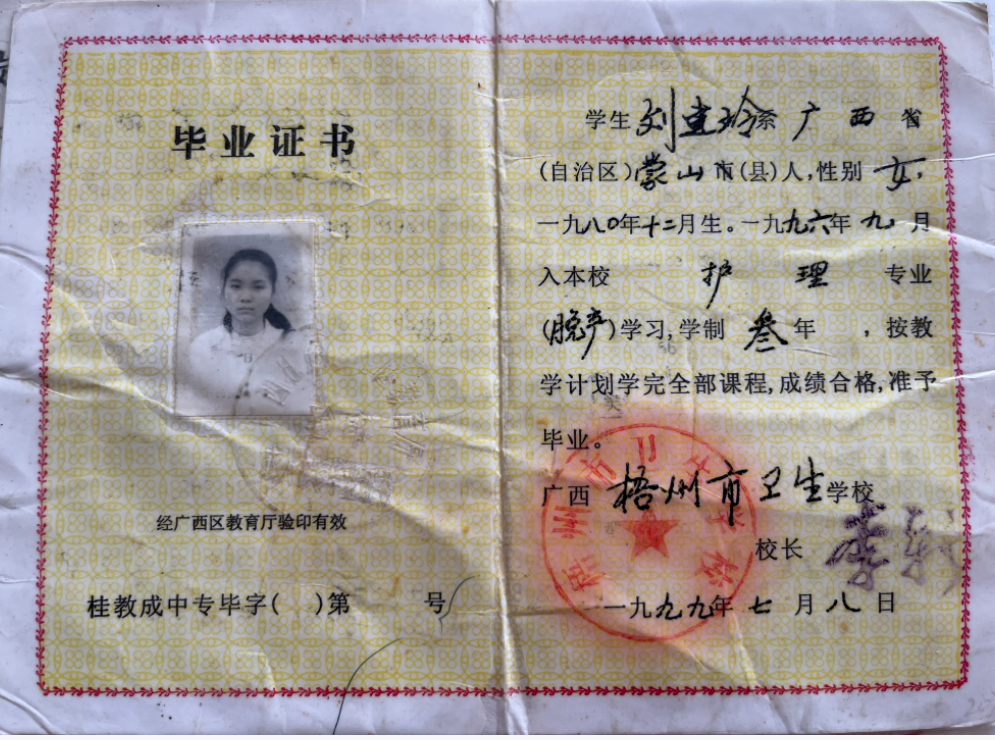 毕业证书
经广西区教育厅验印有效
桂教成中专毕字( )第 号
学生刘建玲系广西省
(自治区)蒙山市(县)人,性别女,
一九八〇年十二月生。一九九六年九月
入本校 护理 专业
(脱产)学习,学制 叁 年 ,按教
学计划学完全部课程,成绩合格,准予
毕业。
广西 梧州市卫生学校
校长
一九九九年七月八日
梧州市卫生学校